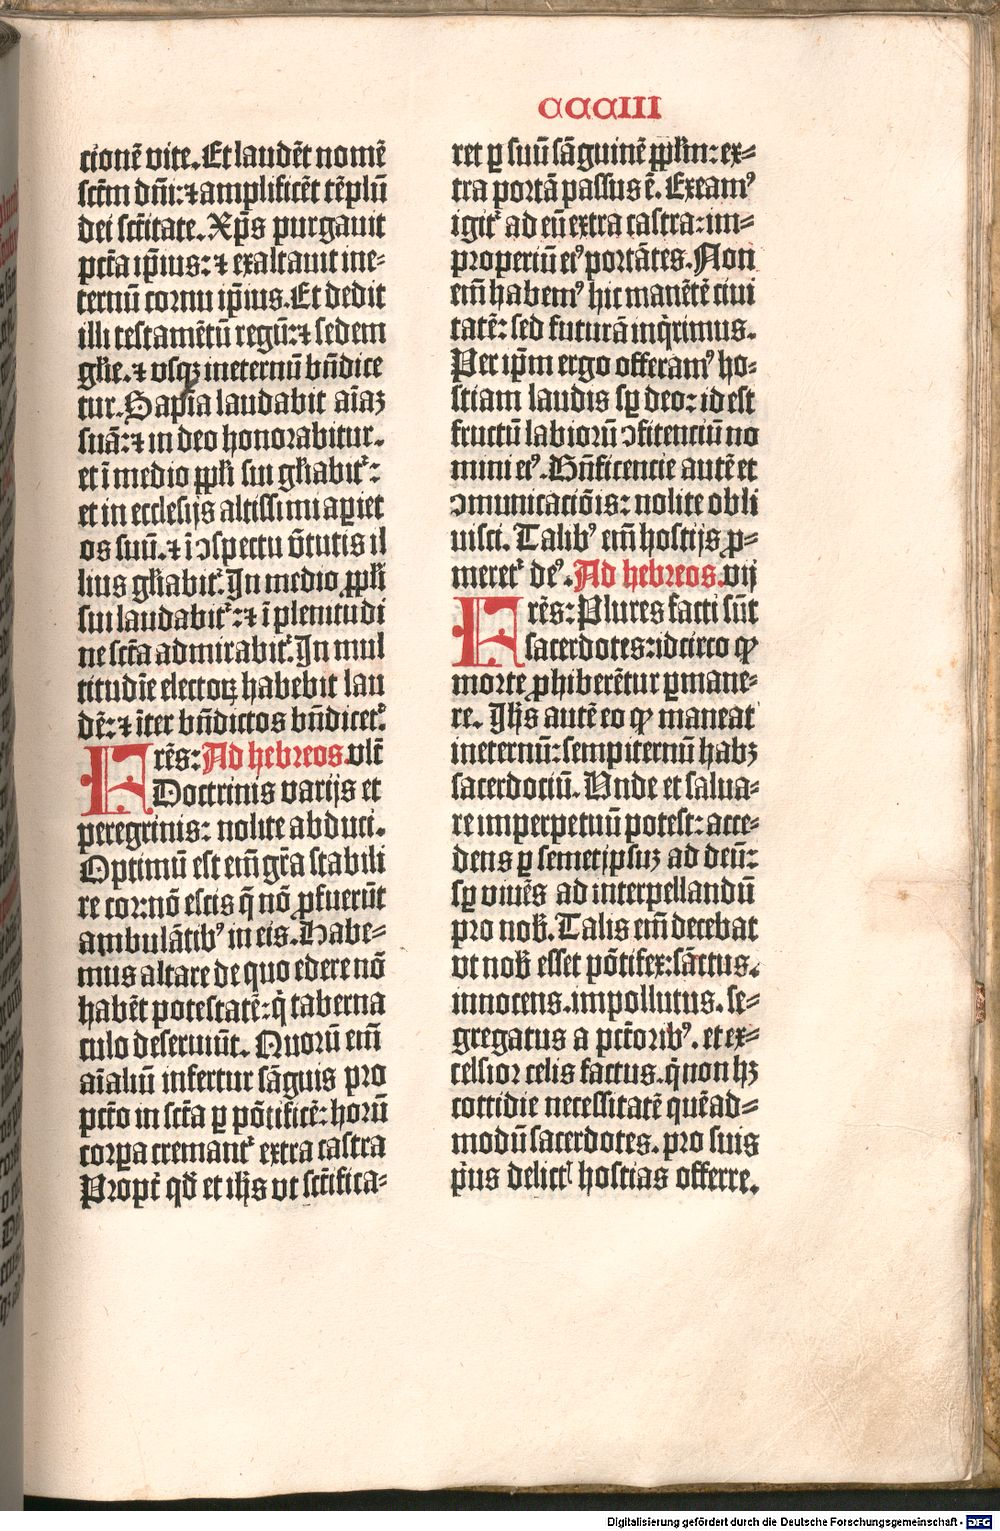 CCCIII
cionē vite. Et laudēt nomē
sctm dn̄i: ⁊ amplificēt tēplū
dei sctitate. Xp̄s purgauit
pctā ip̄ius: ⁊ exaltauit ine-
ternū cornu ip̄ius. Et dedit
illi testamētū regū: ⁊ sedem
gl̄ie. ⁊ vsqꝫ ineternū bn̄dice
tur. Sapīa laudabit aīaꝫ
suā: ⁊ in deo honorabitur.
et ī medio ppl̄i sui gl̄iabit᷑:
et in ecclesijs altissimi aꝑiet
os suū. ⁊ ī ↄspectu v̄tutis il
lius gl̄iabit᷑. In medio ppl̄i
sui laudabit᷑: ⁊ ī plenitudi
ne sctā admirabit᷑. In mul
titudīe electoꝝ habebit lau
dē: ⁊ īter bn̄dictos bn̄dicet᷑.
Frēs: Ad hebreos. vl̄t
Doctrinis varijs et
peregrinis: nolite abduci.
Optimū est em̄ gr̄a stabili
re cor: nō escis q̄ nō ꝓfuerūt
ambulātibꝰ in eis. Habe-
mus altare de quo edere nō
habēt potestatē: q̄ taberna
culo deseruiūt. Quorū em̄
aīaliū infertur sāguis pro
pctō in sctā ꝑ pōtificē: horū
corꝑa cremant᷑ extra castra
Propt̄ qd̄ et ih̄s vt sctīfica-
ret ꝑ suū sāguinē ppl̄m: ex-
tra portā passus ē. Exeamꝰ
igit᷑ ad eū extra castra: im-
properiū eiꝰ portātes. Non
em̄ habemꝰ hic manētē ciui
tatē: sed futurā inq̄rimus.
Per ip̄m ergo offeramꝰ ho-
stiam laudis sꝑ deo: id est
fructū labiorū ↄfitenciū no
mini eiꝰ. Bn̄ficencie autē et
ↄmunicaciōis: nolite obli
uisci. Talibꝰ em̄ hostijs ꝓ-
meret᷑ deꝰ. Ad hebreos. vij
Frēs: Plures facti sūt
sacerdotes: idcirco ꝙ
morte ꝓhiberētur ꝑmane-
re. Ih̄s autē eo ꝙ maneat
ineternū: sempiternū habꝫ
sacerdociū. Unde et salua-
re imperpetuū potest: acce-
dens ꝑ semetipsuꝫ ad deū:
sꝑ viuēs ad interpellandū
pro nob̄. Talis em̄ decebat
vt nob̄ esset pōtifex: sāctus.
innocens. impollutus. se-
gregatus a pctōribꝰ. et ex-
celsior celis factus. q̄ non hꝫ
cottidie necessitatē quēad-
modū sacerdotes. pro suis
pi̓us delict̄ hostias offerre.
Digitalisierung gefördert durch die Deutsche Forschungsgemeinschaft - DFG